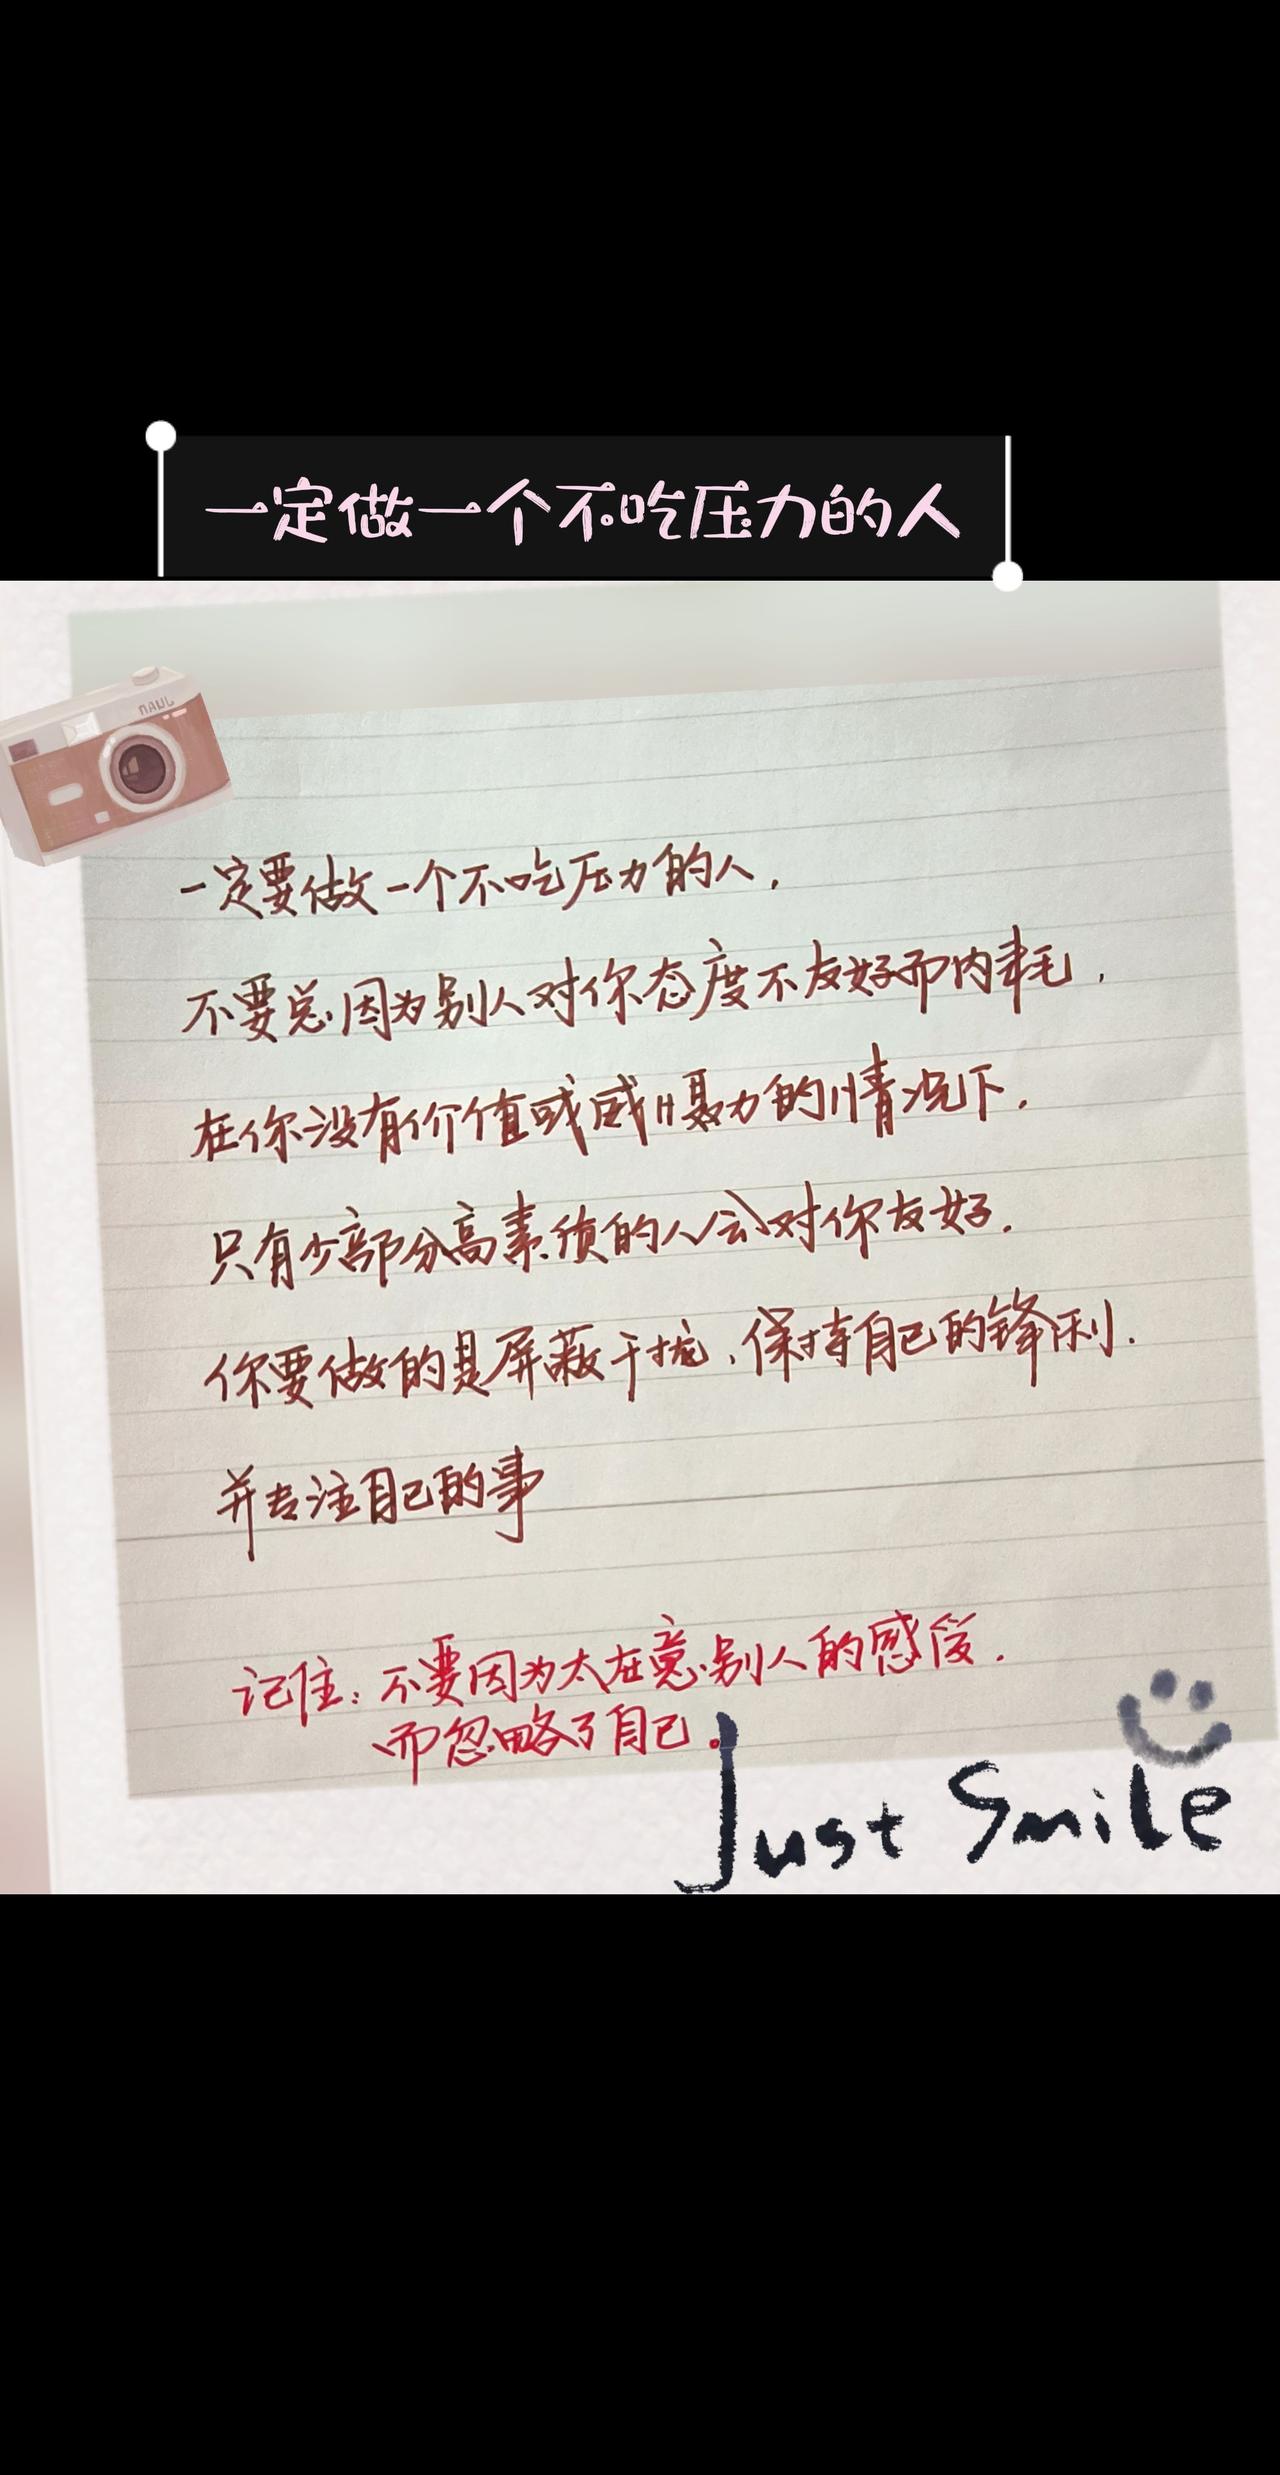 一定做一个不吃压力的人
NANU
一定要做一个不吃压力的人，
不要总因为别人对你态度不友好而内耗，
在你没有价值或威慑力的情况下，
只有少部分高素质的人会对你友好。
你要做的是屏蔽干扰，保持自己的锋利。
并专注自己的事
记住：不要因为太在意别人的感受，
而忽略了自己。
Just Smile